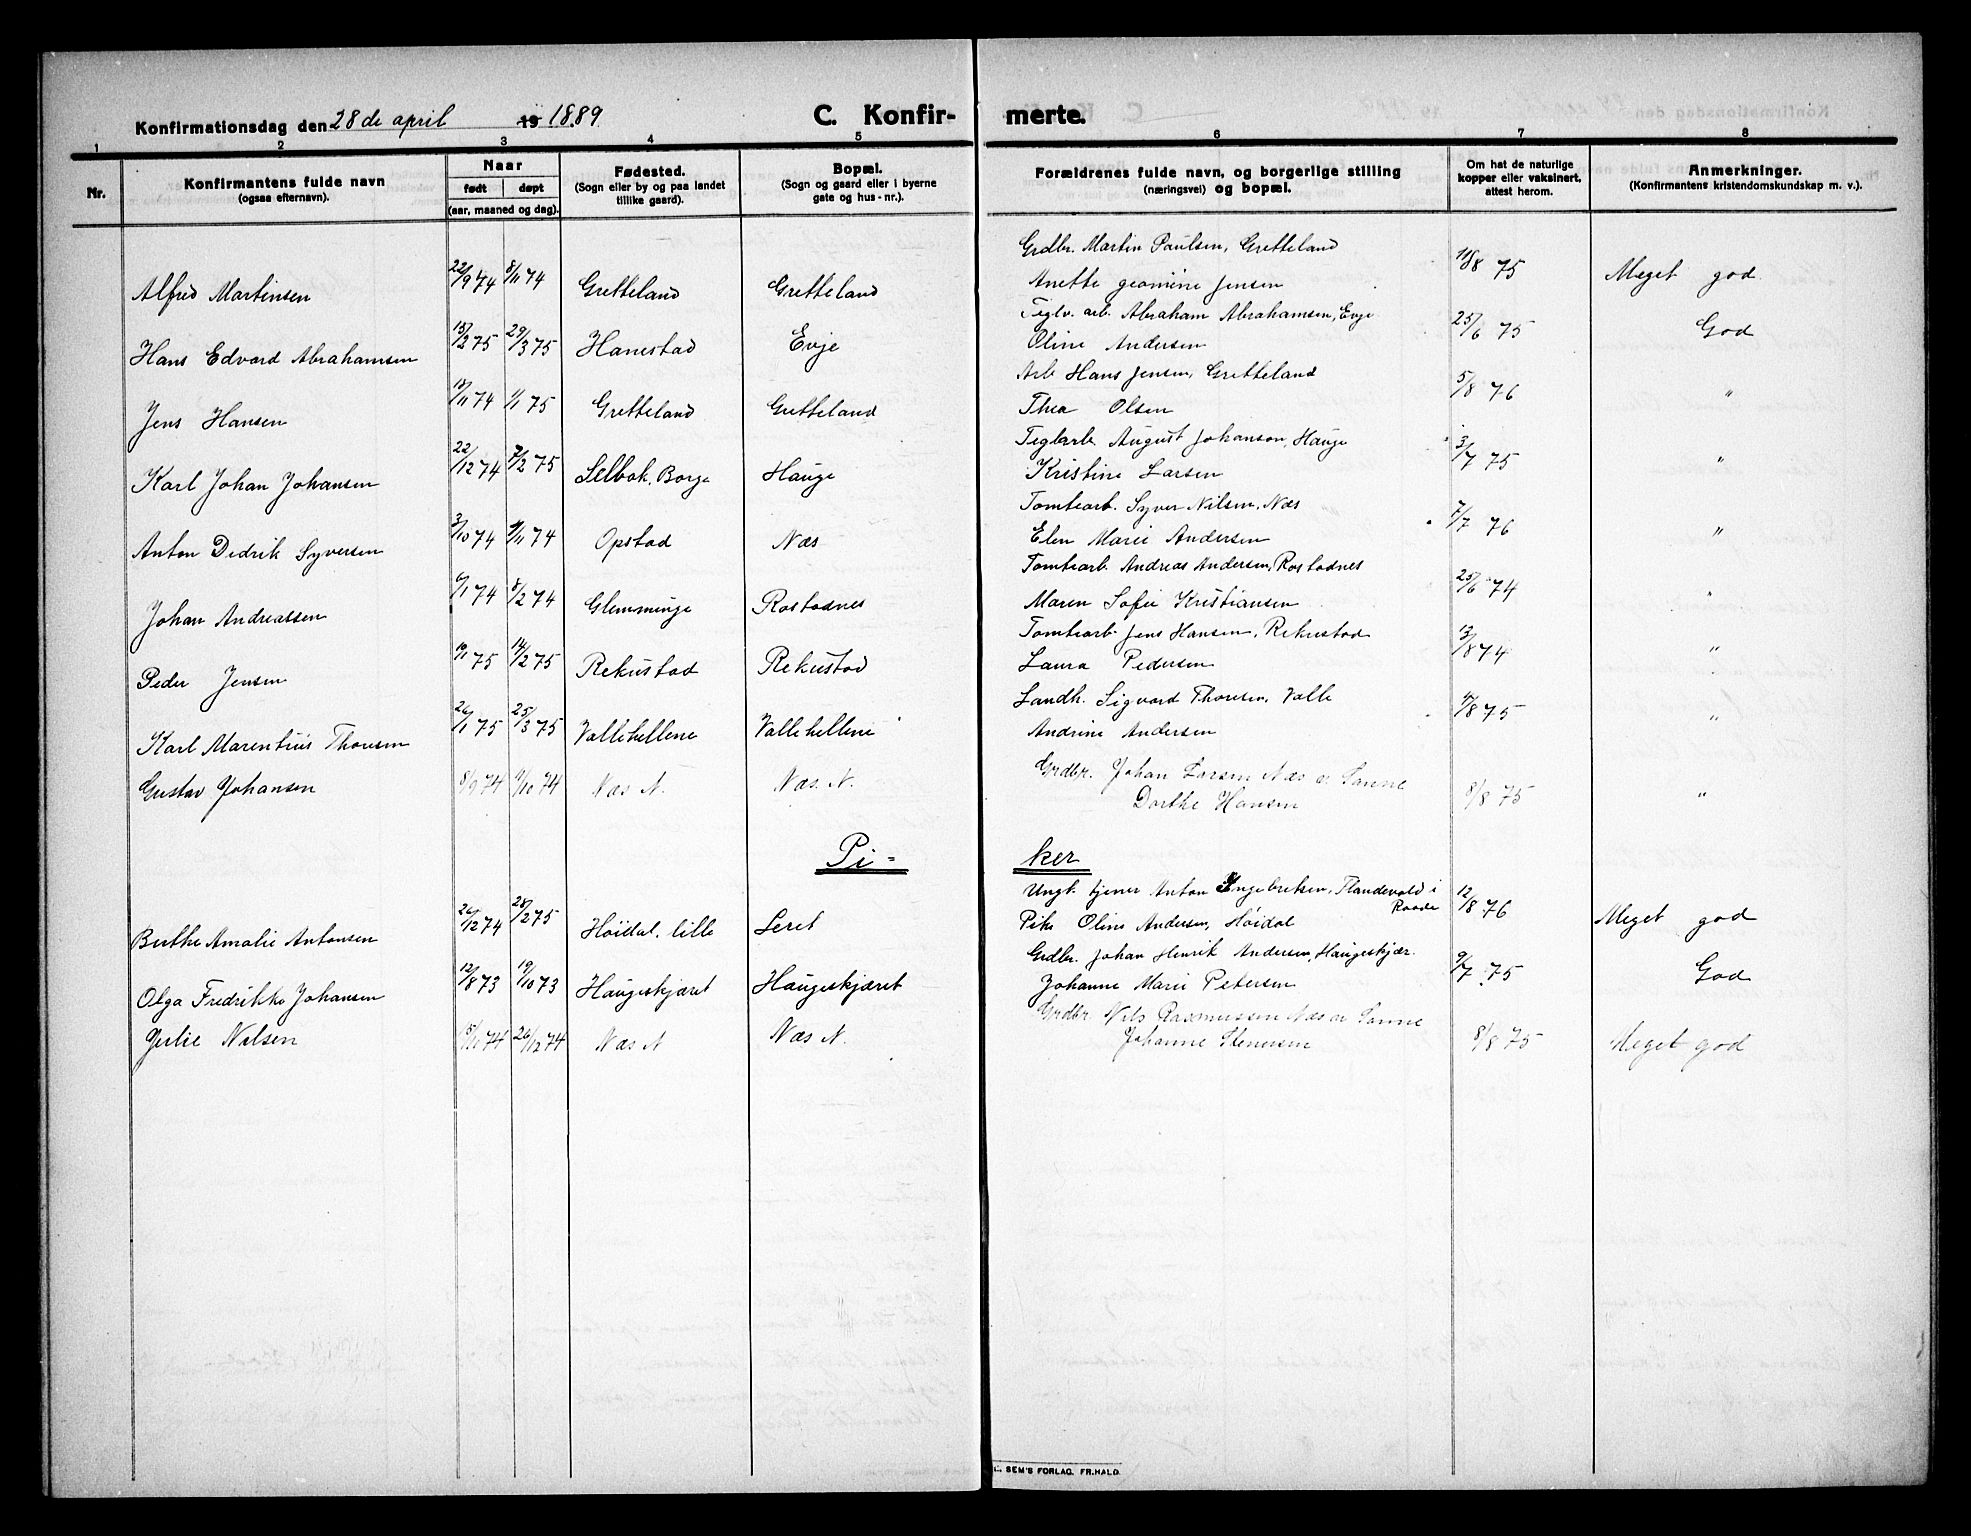 Konfirmationsdag den 28de april 19 1889 C. Konfir- merte.
1 2 3 4 5 6 7 8
Nr. Konfirmantens fulde navn (ogsaa efternavn). Naar født døpt (aar, maaned og dag). Fødested. (Sogn eller by og paa landet tillike gaard). Bopæl. (Sogn og gaard eller i byerne gate og hus-nr.). Forældrenes fulde navn, og borgerlige stilling (næringsvei) og bopæl. Om hat de naturlige kopper eller vaksinert, attest herom. Anmerkninger. (Konfirmantens kristendomskundskap m. v.).
Grdbr. Martin Paulsen, Gretteland
Alfred Martinsen 22/9 74 8/11 74 Gretteland Gretteland Anette geomine Jensen 11/8 75 Meget god
Teglv. arb. Abraham Abrahamsen, Evje
Hans Edvard Abrahamsen 15/2 75 29/3 75 Hanestad Evje Oline Andersen 25/6 75 God
Arb Hans Jensen, Gretteland
Jens Hansen 18/11 74 1/1 75 Gretteland Gretteland Thea Olsen 5/8 76 "
Teglarb. August Johanson, Hauge
Karl Johan Johansen 22/12 74 7/2 75 Selbak, Borge Hauge Kristine Larsen 3/7 75 "
Tomtearb. Syver Nilsen, Næs
Anton Dedrik Syversen 3/10 74 /11 74 Opstad Næs Elen Marie Andersen 7/7 76 "
Tomtearb. Andreas Andersen, Rostadnes
Johan Andreassen 6/1 74 8/2 74 Glemminge Rostadnes Maren Sofie Kristiansen 25/6 74 "
Tomtearb. Jens Hansen, Rekustad
Peder Jensen /1 75 14/2 75 Rekustad Rekustad Laura Pedersen 13/8 74 "
Landh. Sigvard Thoresen, Valle
Karl Marentius Thoresen 26/1 75 25/3 75 Vallehellene Vallehellene Andrine Andersen /8 75 "
Grdbr. Johan Larsen Næs Sanne
Gustav Johansen 8/9 74 /10 74 Næs N. Næs. N. Dorthe Hansen 8/8 75 "
Pi- ker
Ungk. tjener Anton Ingebretsen, Flandevald i Raade
Berthe Amalie Antonsen 26/12 74 28/2 75 Høidal. lille Leret Pike Oline Andersen, Høidal 12/8 76 Meget god
Grdbr. Johan Henrik Andersen, Haugeskjær.
Olga Fredrikke Johansen 12/8 73 19/10 73 Haugeskjæret Haugeskjæret Johanne Marie Petersen 9/7 75 God
Grdbr. Nils Rasmussen Næs Sanne
Julie Nilsen /11 74 26/12 74 Næs N Næs N. Johanne Stenersen 8/8 75 Meget god
SEM'S FORLAG. FR.HALD.